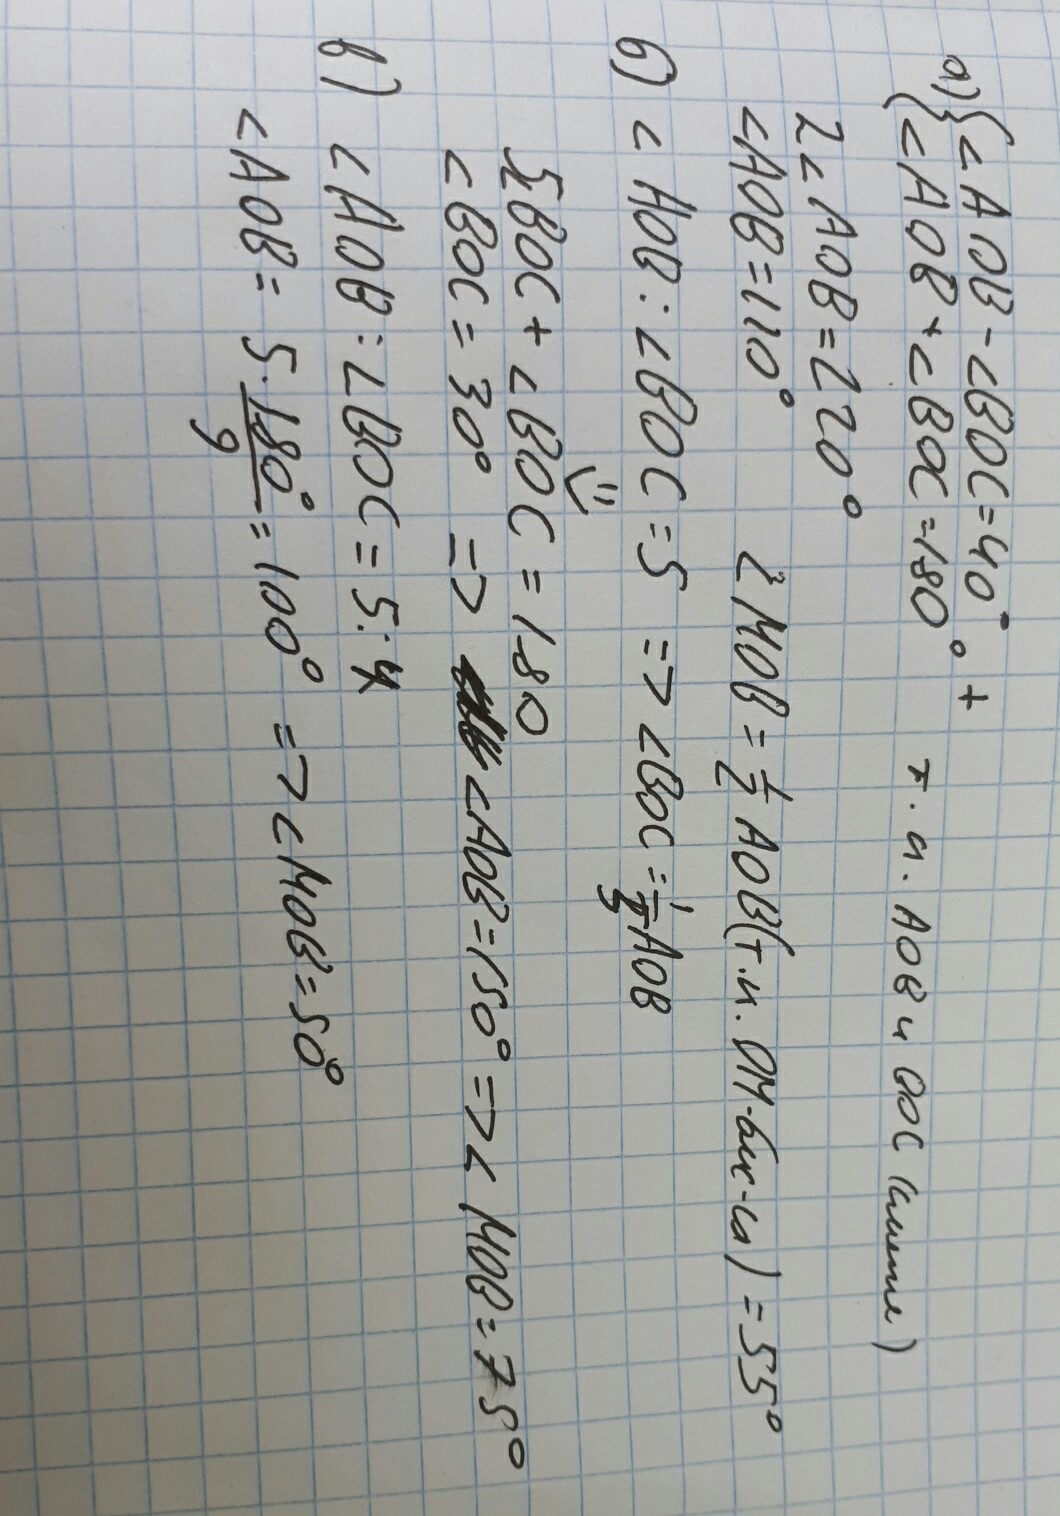 а) { ∠AOB - ∠BOC = 40° +
{ ∠AOB + ∠BOC = 180° т.к. AOB и BOC (смежные)
2∠AOB = 220°
∠AOB = 110° ∠MOB = 1/2 AOB (т.к. OM - бис-са) = 55°
б) ∠AOB : ∠BOC = 5 => ∠BOC = 1/5 AOB
5BOC + ∠BOC = 180
∠BOC = 30° => ∠AOB = 150° => ∠MOB = 75°
в) ∠AOB : ∠BOC = 5 : 4
∠AOB = 5 · 180°/9 = 100° => ∠MOB = 50°